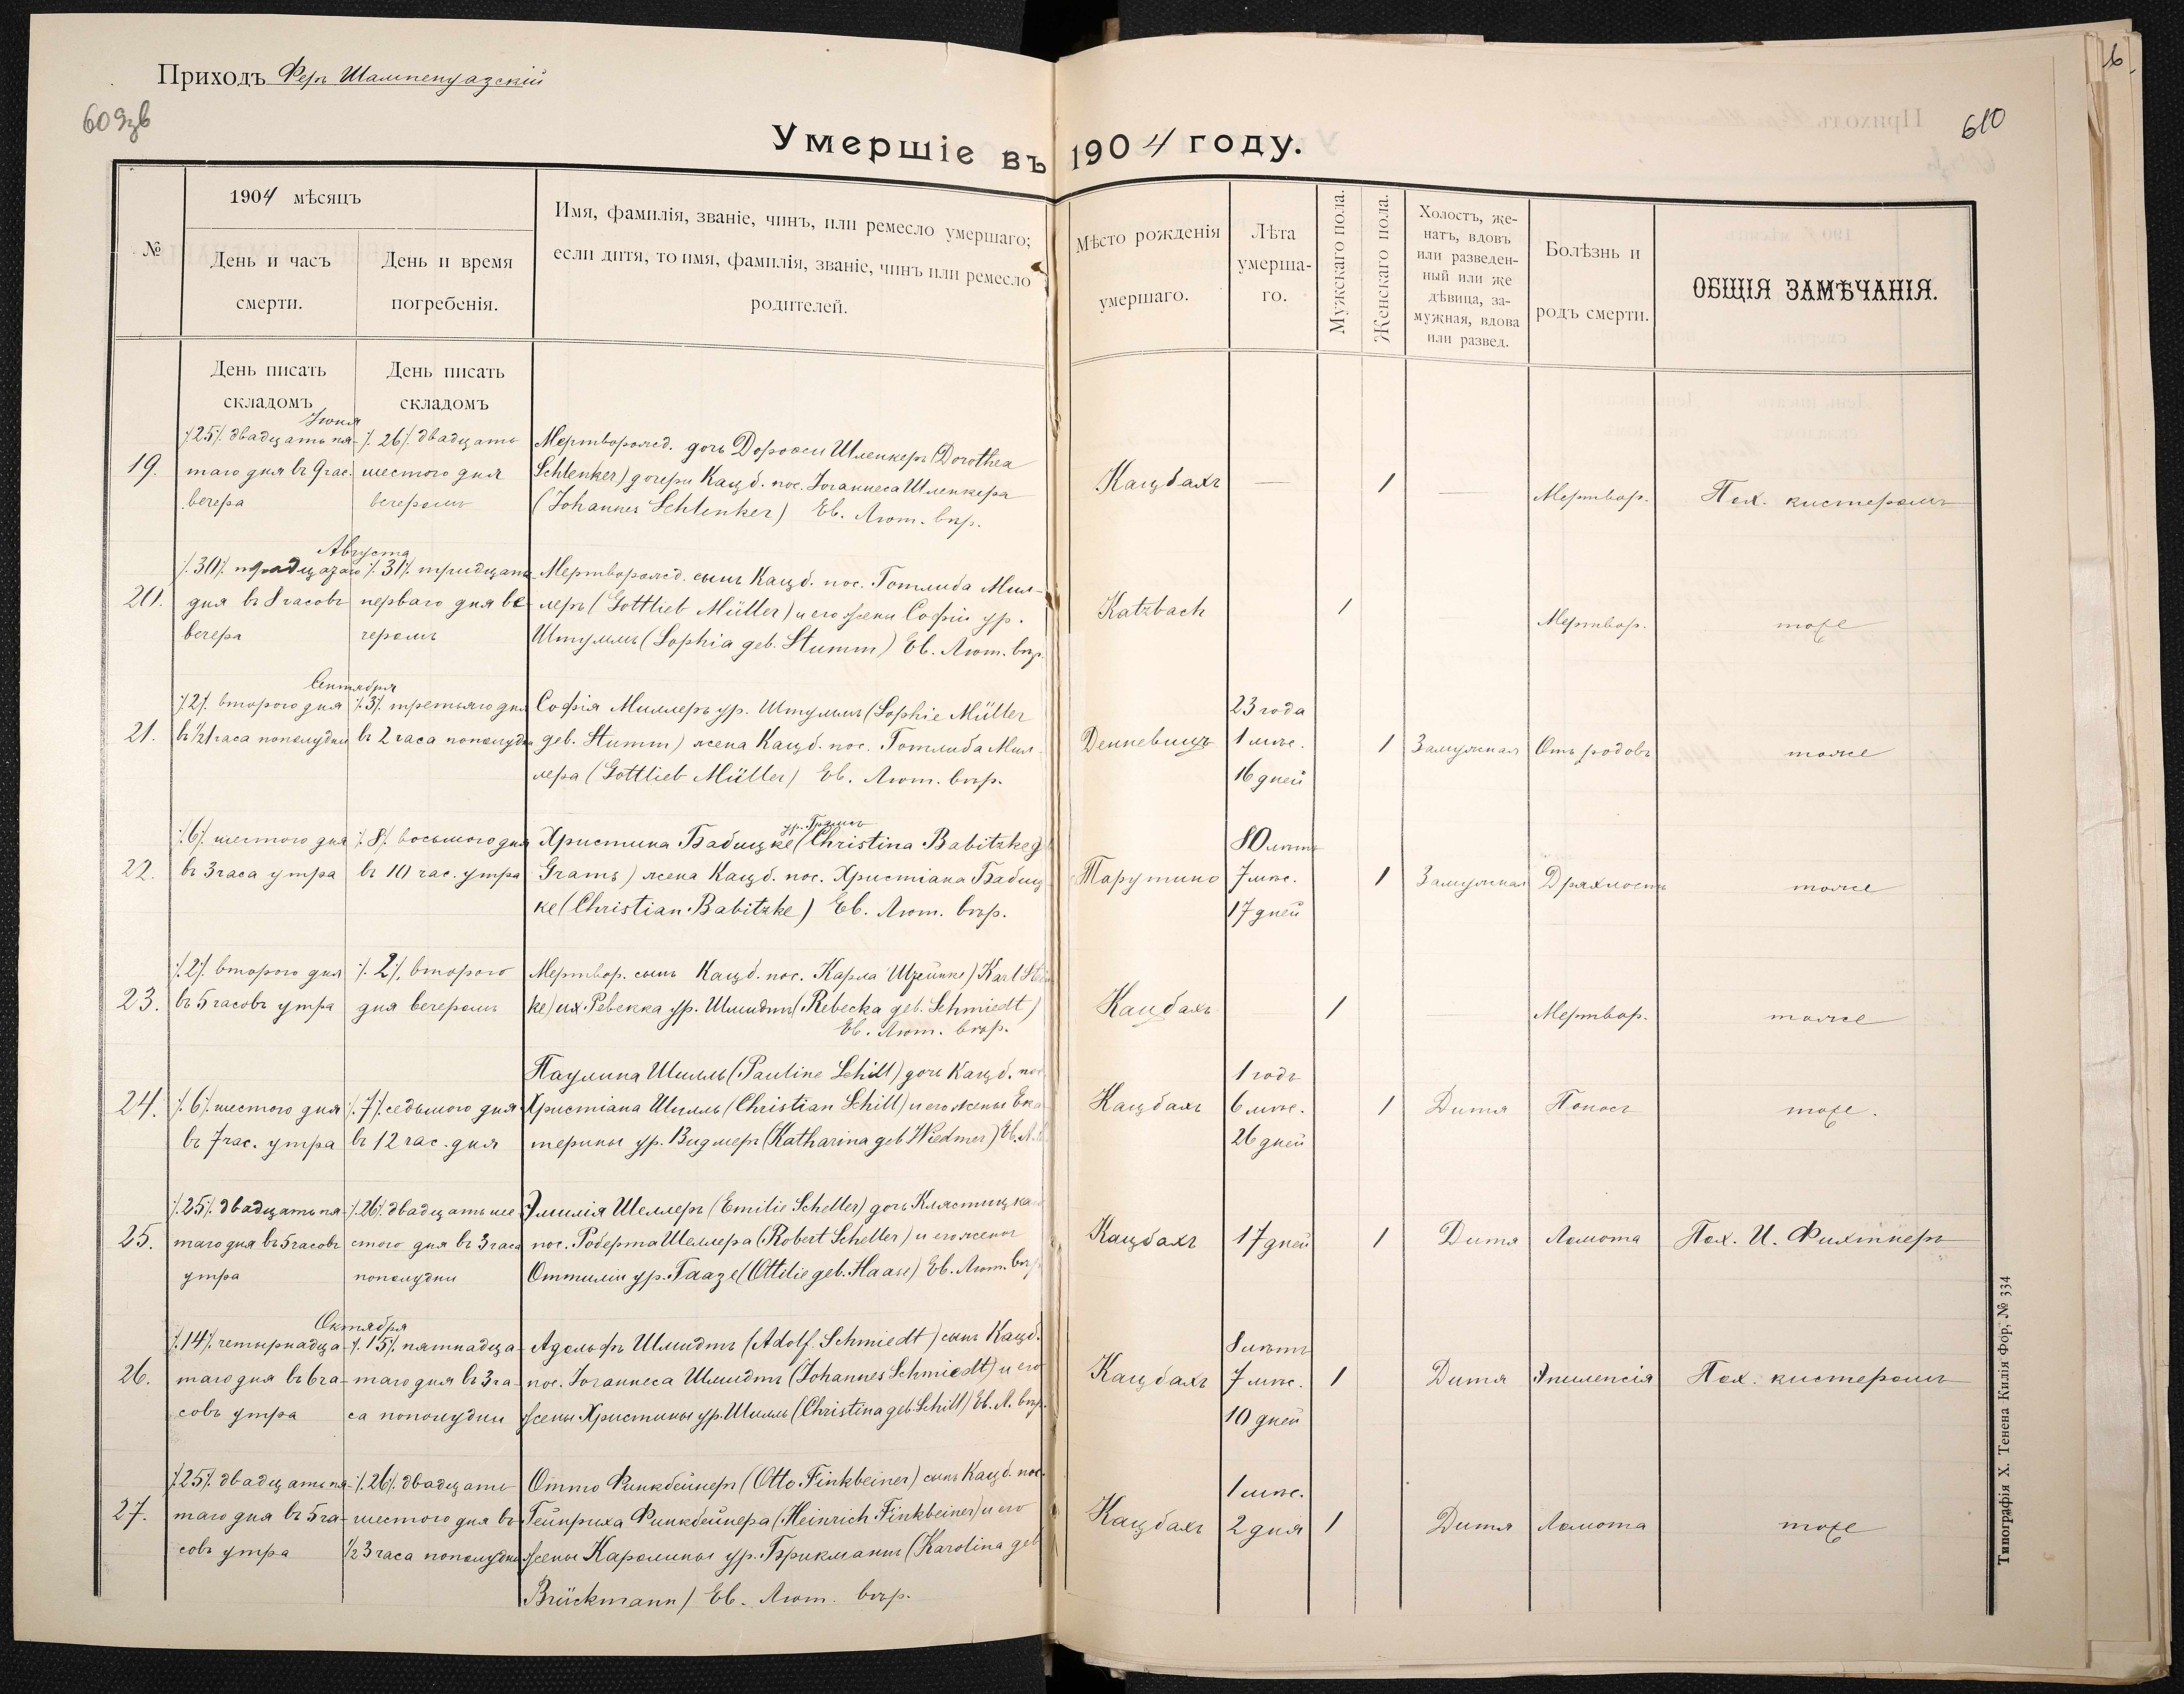 Приходъ Фер. Шампенуазскій
609зв
610
6
Умершіе въ 1904 году.
№
1904 мѣсяцъ
День и часъ
смерти.
День и время
погребенія.
Имя, фамилія, званіе, чинъ, или ремесло умершаго;
если дитя, то имя, фамилія, званіе, чинъ или ремесло
родителей.
Мѣсто рожденія
умершаго.
Лѣта
умерша-
го.
Мужскаго пола.
Женскаго пола.
Холостъ, же-
натъ, вдовъ
или разведен-
ный или же
дѣвица, за-
мужная, вдова
или развед.
Болѣзнь и
родъ смерти.
ОБЩІЯ ЗАМѢЧАНІЯ.
День писать
складомъ
День писать
складомъ
Іюня
19.
/.25/. двадцать пя-
таго дня въ 9 час.
вечера
/.26/. двадцать
шестого дня
вечеромъ
Мертворожд. дочь Доротеи Шленкеръ (Dorothea
Schlenker) дочери Кацб. пос. Іоганнеса Шленкера
(Johannes Schlenker) Ев. Лют. вѣр.
Кацбахъ
—
1
—
Мертвор.
Пох. кистеромъ
Августа
20.
/.30/. тридцатаго
дня въ 8 часовъ
вечера
/.31/. тридцать
перваго дня ве-
черомъ
Мертворожд. сынъ Кацб. пос. Готлиба Мил-
леръ (Gottlieb Müller) и его жены Софіи ур.
Штуммъ (Sophia geb. Stumm) Ев. Лют. вѣр.
Katzbach
1
Мертвор.
тоже
Сентября
21.
/.2/. второго дня
въ ½1 часа пополудни
/.3/. третьяго дня
въ 2 часа пополудни
Софія Миллеръ ур. Штуммъ (Sophie Müller
geb. Stumm) жена Кацб. пос. Готлиба Мил-
лера (Gottlieb Müller) Ев. Лют. вѣр.
Денневицъ
23 года
1 мѣс.
16 дней
1
Замужная
Отъ родовъ
тоже
22.
/.6/. шестого дня
въ 3 часа утра
/.8/. восьмого дня
въ 10 час. утра
ур.
Христина Бабицке (Christina Babitzke g
Grams) жена Кацб. пос. Христіана Бабиц-
ке (Christian Babitzke) Ев. Лют. вѣр.
Тарутино
80 лѣтъ
7 мѣс.
17 дней
1
Замужная
Дряхлость
тоже
23.
/.2/. второго дня
въ 5 часовъ утра
/.2/. второго
дня вечеромъ
Мертвор. сынъ Кацб. пос. Карла (Karl
ke) Ревекка ур. Шмидтъ (Rebecka geb. Schmiedt)
Ев. Лют. вѣр.
Кацбахъ
1
Мертвор.
тоже
24.
/.6/. шестого дня
въ 7 час. утра
/.7/. седьмого дня
въ 12 час. дня
Паулина Шилль (Pauline Schill) дочь Кацб. пос.
Христіана Шилль (Christian Schill) и его жены Ека-
терины ур. Видмеръ (Katharina geb Wiedmer) Ев. Л.
Кацбахъ
1 годъ
6 мѣс.
26 дней
1
Дитя
Поносъ
тоже.
25.
/.25/. двадцать пя-
таго дня въ 5 часовъ
утра
/.26/. двадцать ше-
стого дня въ 3 часа
пополудни
Эмилія Шеллеръ (Emilie Scheller) дочь Клястицкаго
пос. Роберта Шеллера (Robert Scheller) и его жены
Оттиліи ур. Гаазе (Ottilie geb. Haase) Ев. Лют. вѣр.
Кацбахъ
17 дней
1
Дитя
Ломота
Пох. И. Фихтнеръ
Октября
26.
/.14/. четырнадца-
таго дня въ 6 ча-
совъ утра
/.15/. пятнадца-
таго дня въ 3 ча-
са пополудни
Адольфъ Шмидтъ (Adolf Schmiedt) сынъ Кацб.
пос. Іоганнеса Шмидтъ (Johannes Schmiedt) и его
жены Христины ур. Шилль (Christina geb. Schill) Ев. Л. вѣр.
Кацбахъ
8 лѣтъ
7 мѣс.
10 дней
1
Дитя
Эпилепсія
Пох. кистеромъ
27.
/.25/. двадцать пя-
таго дня въ 5 ча-
совъ утра
/.26/. двадцать
шестого дня въ
½3 часа пополудни
Отто Финкбейнеръ (Otto Finkbeiner) сынъ Кацб. пос.
Гейнриха Финкбейнера (Heinrich Finkbeiner) и его
жены Каролины ур. Брикманнъ (Karolina geb
Brückmann) Ев. Лют. вѣр.
Кацбахъ
1 мѣс.
2 дня
1
Дитя
Ломота
тоже
Типографія Х. Тенена Килія Фор. № 334